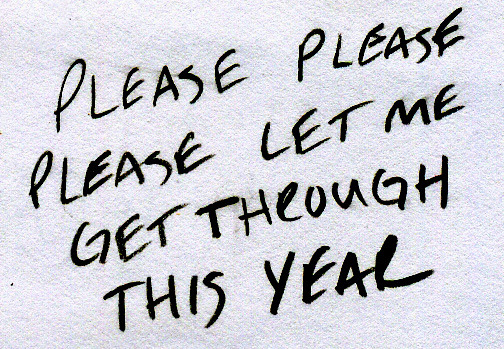 PLEASE PLEASE
PLEASE LET ME
GET THROUGH
THIS YEAR